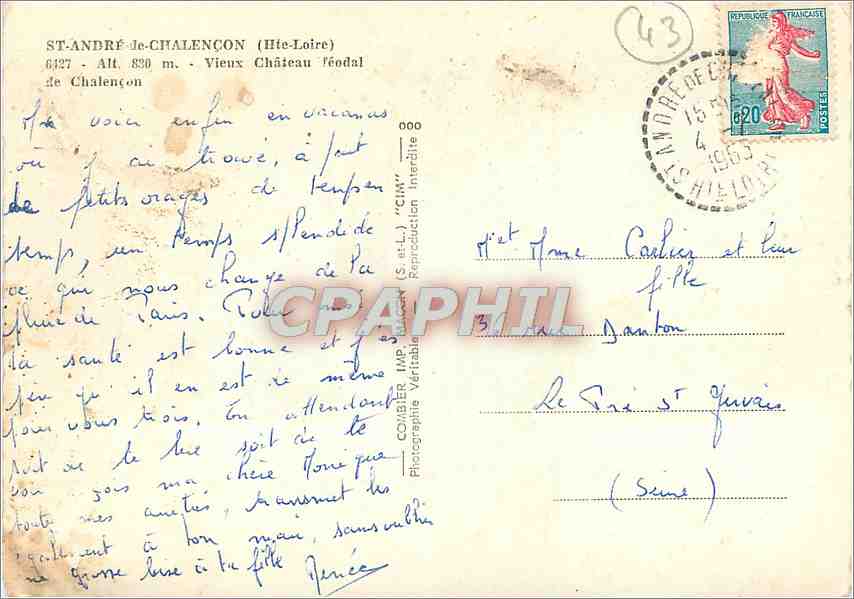 ST-ANDRÉ-de-CHALENÇON (Hte-Loire)
6427 - Alt. 830 m. - Vieux Château féodal
de Chalençon
43
REPUBLIQUE FRANÇAISE
0,20
POSTES
ST ANDRE DE CH
HTE LOIRE
15
4
1963
Me voici enfin en vacances
où j'ai trouvé, à part
de petits orages de temps en
temps, un temps splendide
ce qui nous change de la
pluie de Paris. Pour moi
la santé est bonne et j'es
père qu'il en est de même
pour vous trois. En attendant
soit de te lire soit de te
voir, reçois ma chère Monique
toutes mes amitiés, transmet les
également à ton mari, sans oublier
une grosse bise à ta fille Renée
000
COMBIER IMP. MACON (S.-et-L.) "CIM"
Photographie Véritable - Reproduction Interdite
CPAPHIL
M et Mme Carlier et leur
fille
36 rue Danton
Le Pré St Gervais
(Seine)